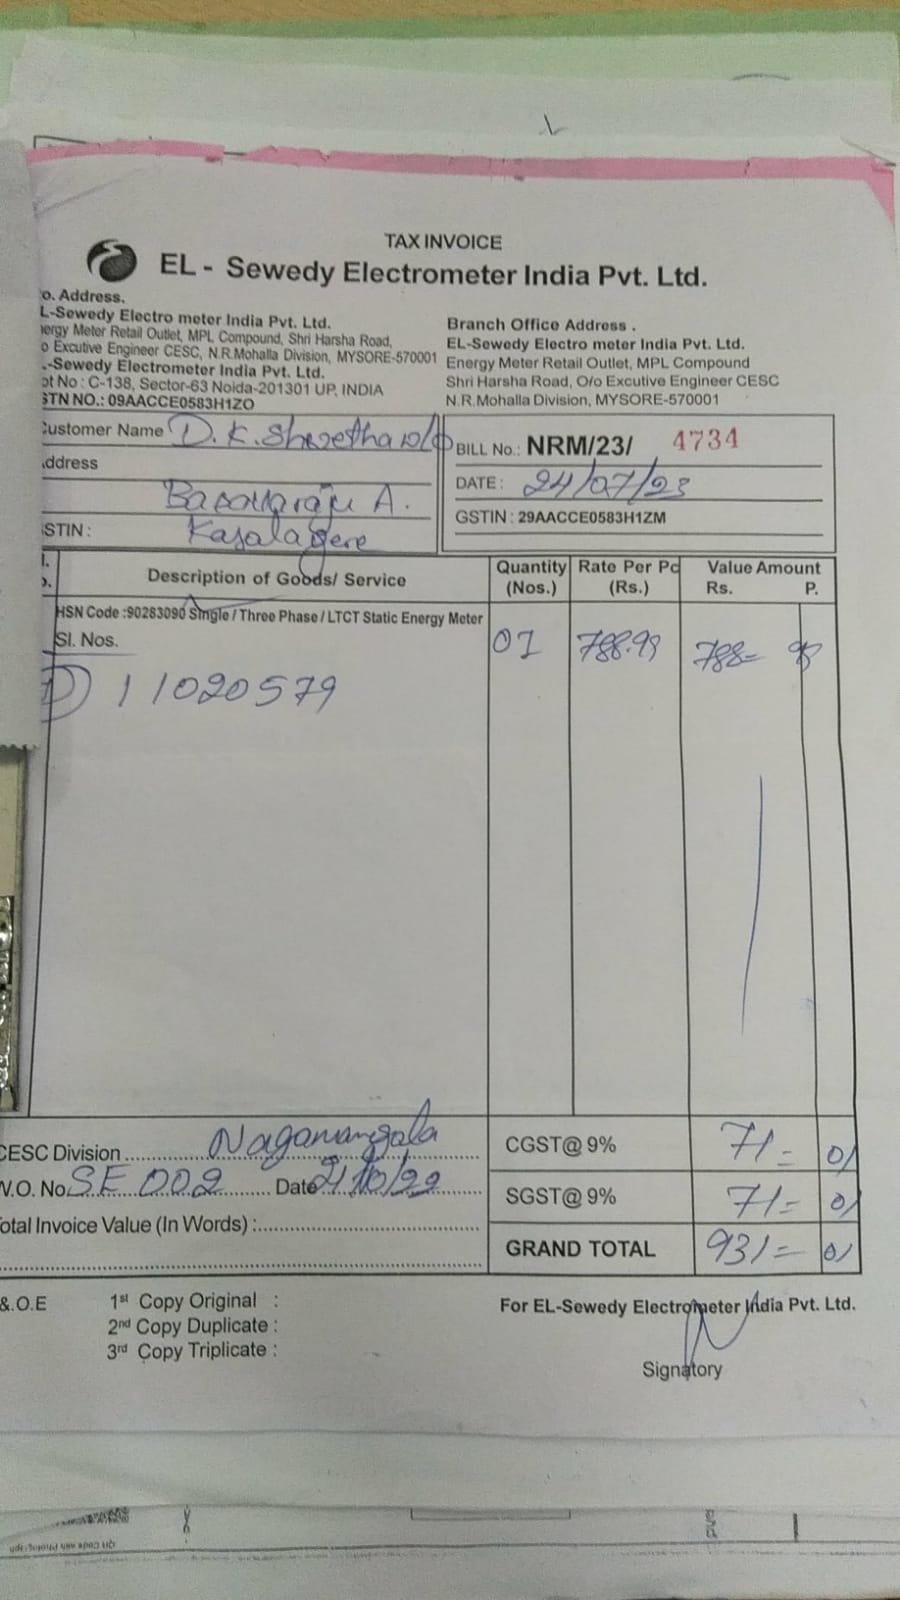 TAX INVOICE
EL - Sewedy Electrometer India Pvt. Ltd.
o. Address.
L-Sewedy Electro meter India Pvt. Ltd.
ergy Meter Retail Outlet, MPL Compound, Shri Harsha Road,
o Excutive Engineer CESC, N.R.Mohalla Division, MYSORE-570001
.-Sewedy Electrometer India Pvt. Ltd.
ot No : C-138, Sector-63 Noida-201301 UP, INDIA
STN NO.: 09AACCE0583H1ZO
Branch Office Address .
EL-Sewedy Electro meter India Pvt. Ltd.
Energy Meter Retail Outlet, MPL Compound
Shri Harsha Road, O/o Excutive Engineer CESC
N.R.Mohalla Division, MYSORE-570001
ustomer Name D.K.Shwetha w/o
ddress
Basavaraju A.
STIN : Kasalagere
BILL No.: NRM/23/ 4734
DATE : 24/07/23
GSTIN : 29AACCE0583H1ZM
Description of Goods/ Service
Quantity (Nos.)
Rate Per Pc (Rs.)
Value Amount
Rs. P.
HSN Code :90283090 Single / Three Phase / LTCT Static Energy Meter
Sl. Nos.
01 788.99 788=
1) 11020579
CESC Division Naganangala
W.O. No SE 002 Date
otal Invoice Value (In Words) :
CGST@ 9% 71= 01
SGST@ 9% 71= 01
GRAND TOTAL 931= 01
&.O.E
1st Copy Original :
2nd Copy Duplicate :
3rd Copy Triplicate :
For EL-Sewedy Electrometer India Pvt. Ltd.
Signatory